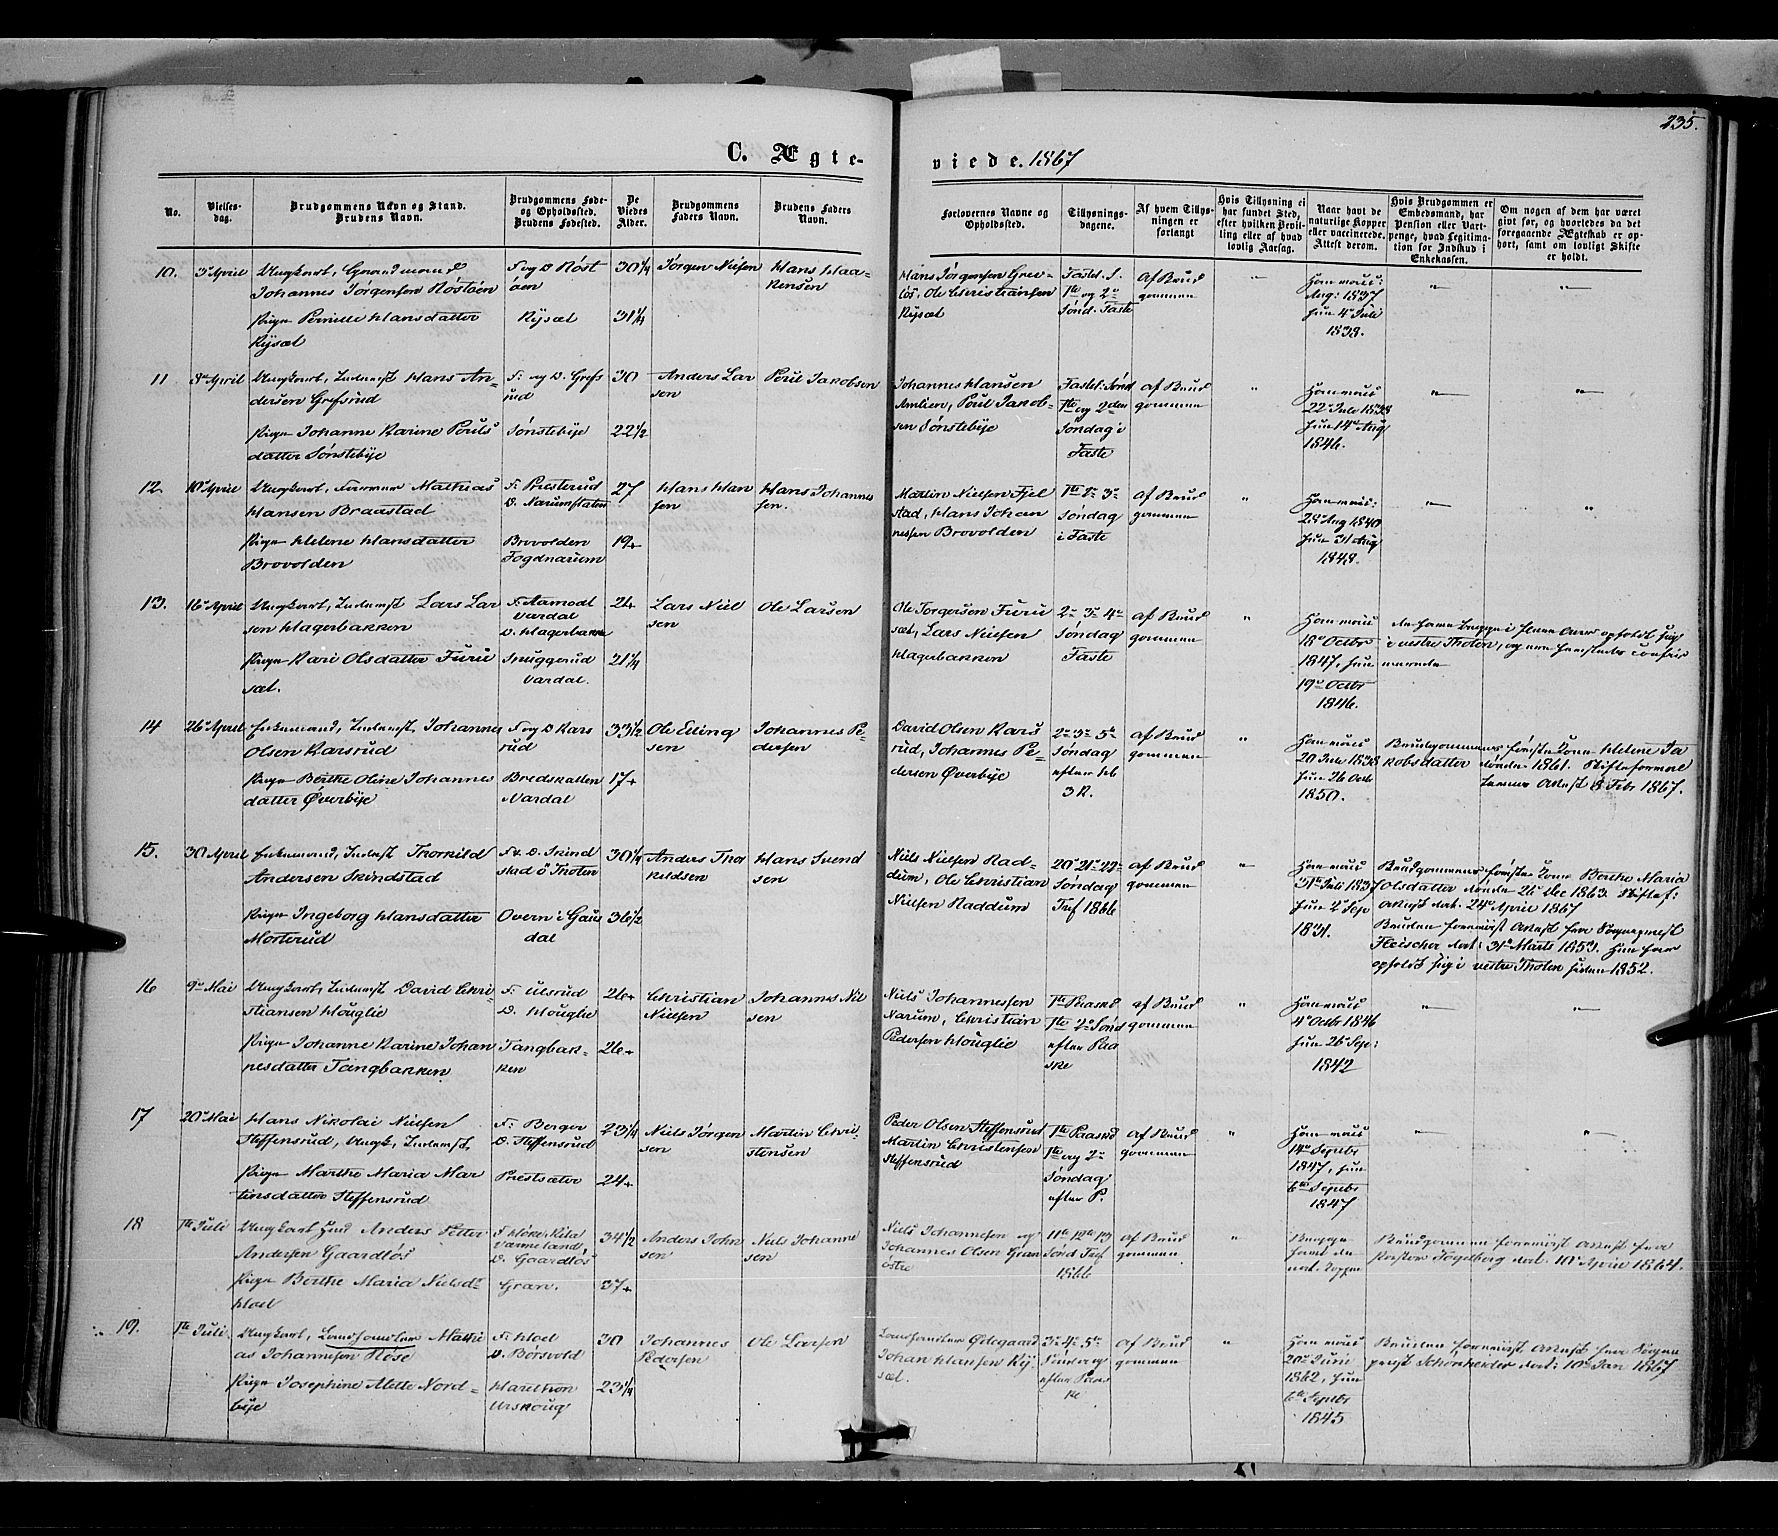 235.
C. Ægteviede. 1867
No.
Vielsesdag.
Brudgommens Navn og Stand.
Brudens Navn.
Brudgommens Føde-
og Opholdssted.
Brudens Fødested.
De
Viedes
Alder.
Brudgommens
Faders Navn.
Brudens Faders
Navn.
Forlovernes Navne og
Opholdssted.
Tillysnings-
dagene.
Af hvem Tillys-
ningen er
forlangt
Hvis Tillysning ei
har fundet Sted,
efter hvilken Bevil-
ling eller af hvad
lovlig Aarsag.
Naar havt de
naturlige Kopper
eller vaccinerede.
Attest derom.
Hvis Brudgommen er
Embedsmand, har
Pension eller Vart-
penge, hvad Legitima-
tion for Indskud i
Enkekassen.
Om nogen af dem har været
gift før, og hvorledes da det
foregaaende Ægteskab er op-
hørt, samt om lovligt Skifte
er holdt.
10. 3 April Ungkarl, Gaardmand
Johannes Jørgensen Røstøen
Pige Pernille Hansdatter
Rysæt
F og O Røst
øen
Rysæt
30 1/4
31 1/4
Jørgen Nielsen
Hans Haa-
kensen
Hans Jørgensen Grev-
løs, Ole Christiansen
Rysæt
Fastel. S.
1te og 2
Sønd. Faste
af Brud
gommen
"
Ham vacc:
Aug: 1837
hun 4 Juli
1838.
11 8 April Ungkarl, Inderst Hans An-
dersen Grefsrud
Pige Johanne Karine Pouls
datter Sønstebye
F: og O. Grefs
rud
Sønstebye
30
22 1/2
Anders Lar
sen
Poul Jacobsen
Johannes Hansen
Amlien, Poul Jacob-
sen Sønstebye
Fastel. Sønd
1te og 2den
Søndag i
Faste
af Brud
gommen
"
Ham vacc
22 Juli 1838
hun 14 Aug
1846.
12 10 April Ungkarl, Mathias
Hansen Braastad
Pige Helene Hansdatter
Brovolden
F. Presterud
O. Narumstaten
Brovolden
Fogdnarum
27
19+
Hans Han
sen
Hans Johannes
sen.
Martin Nielsen Fjel
stad, Hans Johan
nessen Brovolden
1te 2 3
Søndag
i Faste
af Brud
gommen
"
Ham vacc:
28 Aug 1840
hun 31 Aug
1848.
13. 16 April Ungkarl, Inderst Lars Lar
sen Hagerbakken
Pige Kari Olsdatter Furu
sæt.
F. Aamodt
Vardal
O. Hagerbakken
Snuggerud
Vardal.
24
21 1/4
Lars Niel
sen
Ole Larsen
Ole Torgersen Furu
sæt, Lars Nielsen
Hagerbakken
2 3 4
Søndag
Faste
af Brud
gommen
"
Ham vacc
18 Octbr
1847, hun
19 Octbr
1846.
De have begge i flere Aar opholdt sig
i vestre Thoten, og ere hersteds confir
merede
14 26 April Enkemand, Inderst Johannes
Olsen Karsrud
Pige Berthe Oline Johannes
datter Øverbye
F og O Kars
rud
Bredskallen
Nardal
33 1/2
17+
Ole Elling
sen
Johannes Pe-
dersen
David Olsen Kars
rud, Johannes Pe-
dersen Øverbye
2 3 5
Søndag
efter H
3 K.
af Brud
gommen
"
Ham vacc
20 Juli 1838
hun 26 Octb
1850.
Brudgommens første Kone Helene Ja
kobsdatter døde 1861. Skifteforval
terens Attest 8 Febr 1867.
15. 30 April Enkemand, Inderst Thorkild
Andersen Skindstad
Pige Ingeborg Hansdatter
Morterud
F. O. Skind
stad ö Thoten
Overn i Gaus
dal
30 1/4
36 1/2
Anders Thor
kildsen
Hans Svend
sen
Niels Nielsen Rad-
dum, Ole Christian
Nielsen Raddum
20 21 22
Søndag
Tref 1866
af Brud
gommen
"
Ham vacc
31te Juli 1837
hun 2 Sep
1831.
Brudgommens første Kone Berthe Maria
Olsdatter døde 26 Dec 1863. Skiftef:
Attest dat. 24 April 1867
Bruden foreviist Attest fra Sognepræst
Fleischer dat: 31 Marts 1853. Hun har
opholdt sig i vestre Thoten siden 1852.
16 9 Mai Ungkarl, Inderst David Chri
stiansen Houglie
Pige Johanne Karine Johan
nesdatter Tangbakken
F. Ulsrud
O. Houglie
Tangbak-
ken
26+
26+
Christian
Nielsen
Johannes Niel
sen
Niels Johannessen
Narum, Christian
Pedersen Houglie
1te Paaskd
1te 2 Sønd
efter Paa
ske
af Brud
gommen
"
Ham vacc
4 Octbr 1846
hun 26 Sep:
1842
17 20 Mai Hans Nikolai Nielsen
Steffensrud, Ungk, Inderst,
Pige Marthe Maria Mar
tinsdatter Steffensrud
F: Berger
O. Steffensrud
Prestsæter
23 1/4
24+
Niels Jørgen
sen
Martin Chri-
stensen
Peder Olsen Steffensrud
Martin Christensen
Steffensrud
1te Paaskd
1te og 2
Søndag
efter P.
af Brud
gommen
"
Ham vacc
14 Septbr
1847, hun
6te Septbr
1847
18 1te Juli Ungkarl Anders Petter
Andersen Gaardløs
Pige Berthe Maria Nielsd
Hoel
Værmeland,
O. Gaardløs
Gran.
34 1/2
37+
Anders John
sen
Niels Johanne
sen
Niels Johannesen og
Johannes Olsen Gran
østre
11te 12te 13
Sønd Tref
1866
af Brud
gommen
"
Begge
havt de
nat. Kopper
Brudgommen foreviist Attest fra
Pastor Fogelberg dat. 10 April 1864.
19. 1te Juli Ungkarl, Landhandler Mathi
as Johannesen Røise
Pige Josephine Mette Nord-
bye
F. Hoel
O. Børsvold
Hareltvon
Urskoug
30
23 1/4
Johannes
Pedersen
Ole Larsen
Landhandler Ødegaard
Johan Hansen Ry-
sæt.
3 4 5
Søndag
efter Paas
ke
af Brud
gommen
"
Ham vacc
20 Juni
1862, hun
6te Septbr
1845
Bruden foreviist Attest fra Sogne
præst Schönheider dat: 10 Jan 1867